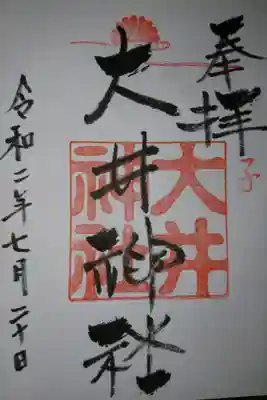 奉拝
子
大井神社
大井神社
令和二年七月二十日